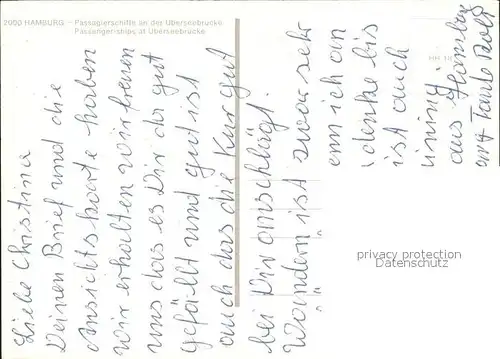 2000 HAMBURG - Passagierschiffe an der Überseebrücke
Passenger-ships at Überseebrücke
Liebe Christina
Deinen Brief und die
Ansichtskarte haben
wir erhalten wir freuen
uns das es Dir da gut
gefällt und gut ist
auch das die Kur gut
bei Dir anschlägt.
Wandern ist zwar sehr
enn ich an
denke bis
ist auch
ining
aus Hamburg
privacy protection
Datenschutz